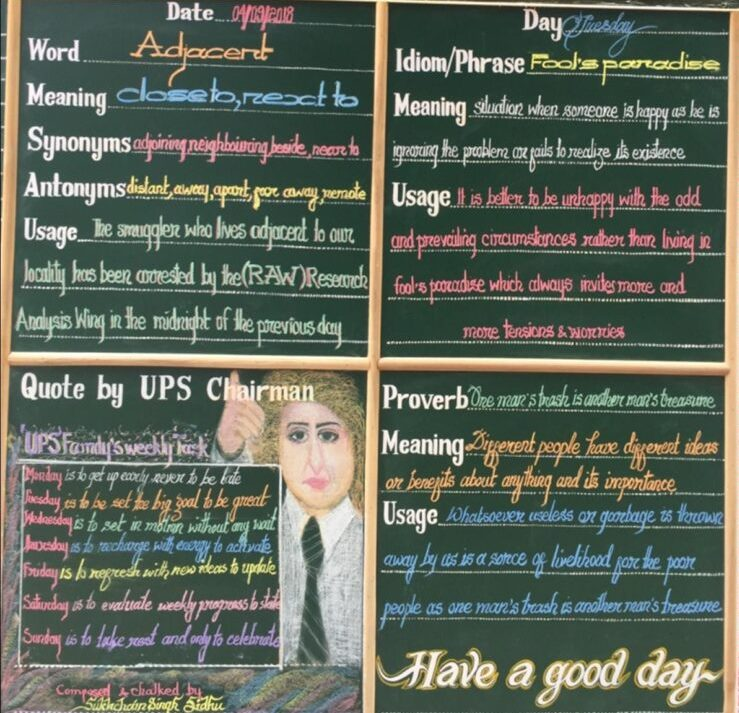 Date 04/09/2018
Word Adjacent
Meaning close to, next to
Synonyms adjoining, neighbouring, beside, near to
Antonyms distant, away, apart, far away, remote
Usage The smuggler who lives adjacent to our
locality has been arrested by the (RAW) Research
Analysis Wing in the midnight of the previous day
Day Tuesday
Idiom/Phrase Fool's paradise
Meaning situation when someone is happy as he is
ignoring the problem or fails to realize its existence
Usage It is better to be unhappy with the odd
and prevailing circumstances rather than living in
fool's paradise which always invites more and
more tensions & worries
Quote by UPS Chairman
UPS Family's weekly Task
Monday is to get up early never to be late
Tuesday is to be set the big goal to be great
Wednesday is to set in motion without any wait
Thursday is to recharge with energy to activate
Friday is to refresh with new ideas to update
Saturday is to evaluate weekly progress to state
Sunday is to take rest and only to celebrate
Composed & chalked by
Sukhchain Singh Sidhu
Proverb One man's trash is another man's treasure
Meaning Different people have different ideas
or benefits about anything and its importance
Usage Whatsoever useless or garbage is thrown
away by us is a sorce of livelihood for the poor
people as one man's trash is another man's treasure
Have a good day